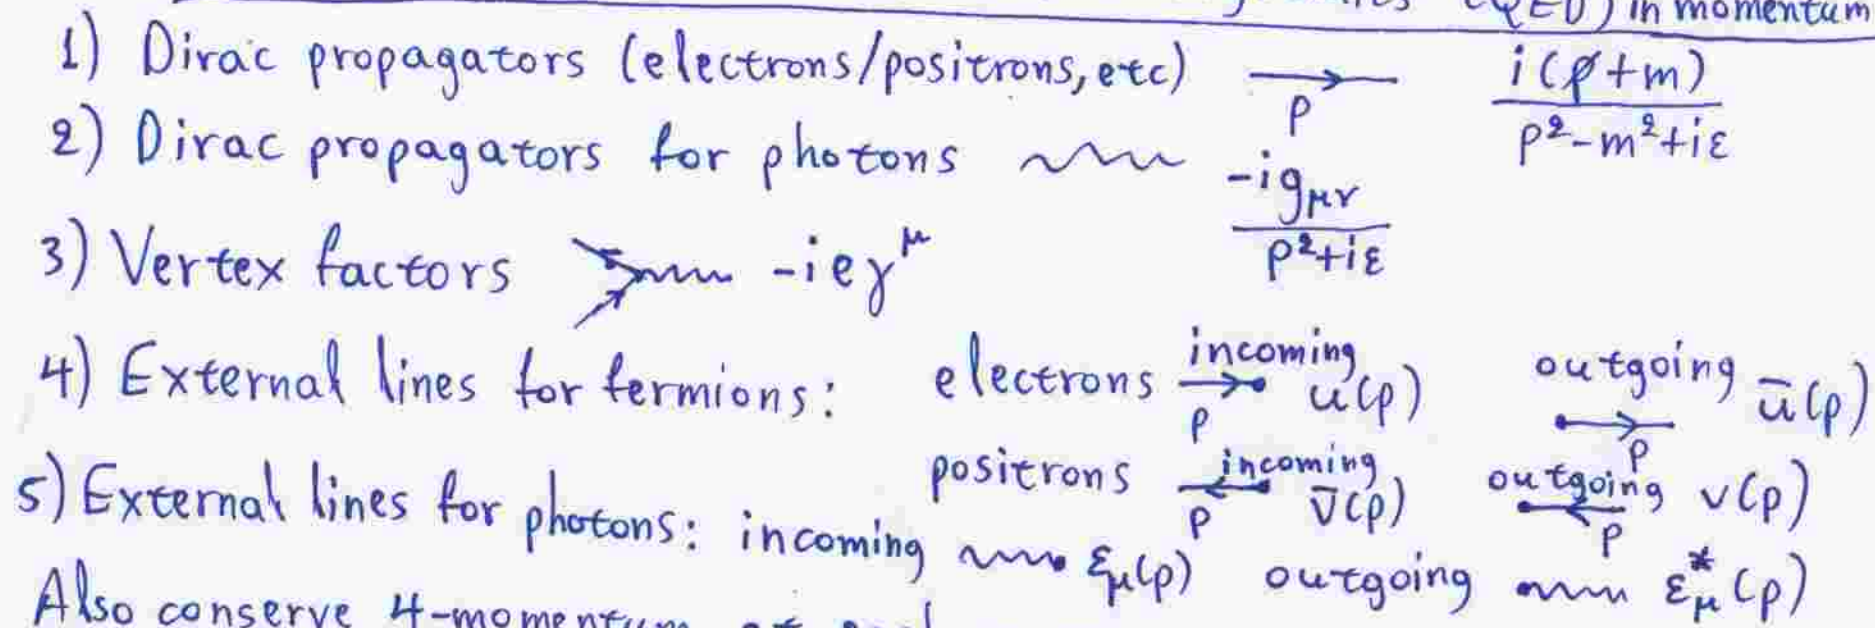 (QED) in momentum
1) Dirac propagators (electrons/positrons, etc) p i(p̸+m) / p²-m²+iε
2) Dirac propagators for photons -ig_μν / p²+iε
3) Vertex factors -ieγ^μ
4) External lines for fermions: electrons incoming p u(p) outgoing p ū(p)
positrons incoming p v̄(p) outgoing p v(p)
5) External lines for photons: incoming ε_μ(p) outgoing ε*_μ(p)
Also conserve 4-momentum at